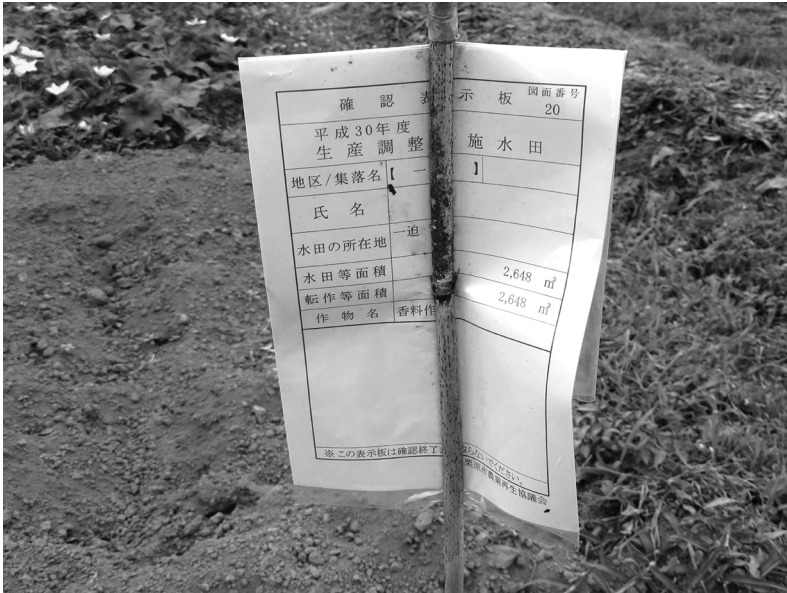 確認表示板
図面番号
20
平成30年度
生産調整 施水田
地区/集落名 【 一 】
氏名
水田の所在地 一迫
水田等面積 2,648 ㎡
転作等面積 2,648 ㎡
作物名 香料作
※この表示板は確認終了 取らないでください。
栗原市農業再生協議会